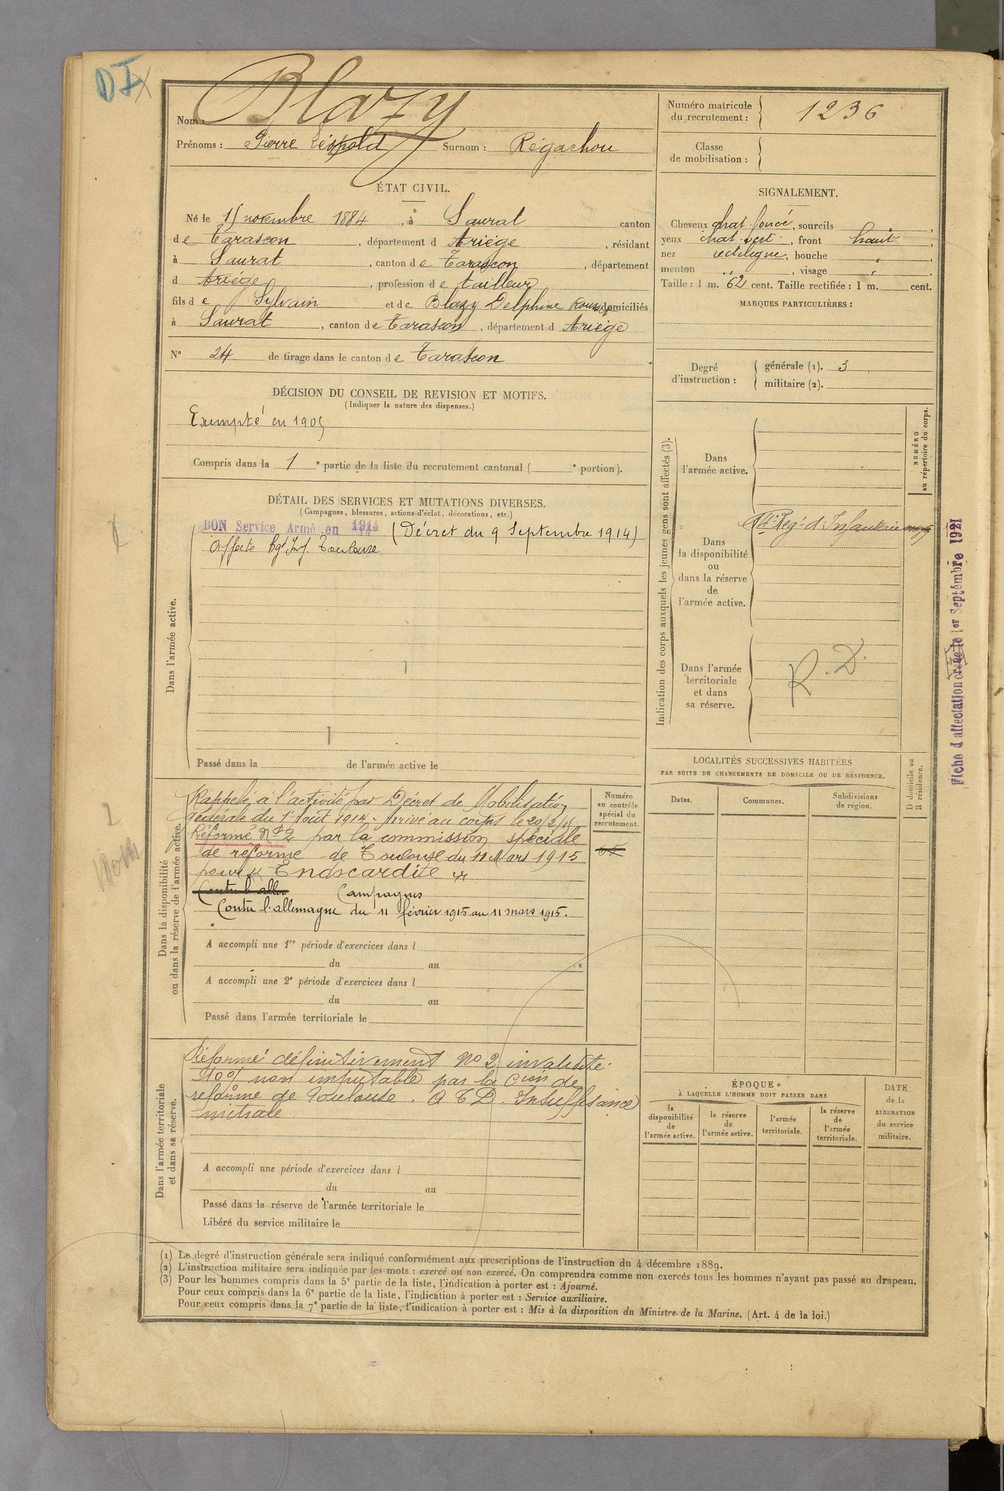 DI
Nom : Blazy
Prénoms : Pierre Léopold Surnom : Régachou
ÉTAT CIVIL.
Né le 15 novembre 1884, à Saurat canton
de Tarascon, département d Ariège, résidant
à Saurat, canton de Tarascon, département
d Ariège, profession de tailleur
fils de Sylvain et de Blazy Delphine domiciliés
à Saurat, canton de Tarascon, département d Ariège
N° 24 de tirage dans le canton de Tarascon
DÉCISION DU CONSEIL DE REVISION ET MOTIFS.
(Indiquer la nature des dispenses.)
Exempté en 1905
Compris dans la 1e partie de la liste du recrutement cantonal ( e portion).
DÉTAIL DES SERVICES ET MUTATIONS DIVERSES.
(Campagnes, blessures, actions d'éclat, décorations, etc.)
BON Service Armé en 1914 (Décret du 9 Septembre 1914)
Affecté Rgt Inf. Toulouse
Dans l'armée active.
Passé dans la de l'armée active le
Rappelé à l'activité par Décret de Mobilisation
générale du 1er Août 1914. Arrivé au corps le
Réformé N° 2 par la commission spéciale
de réforme de Toulouse du 11 Mars 1915
pour Endocardite
Contre l'allem
Campagnes
Contre l'allemagne du 11 février 1915 au 11 mars 1915.
Dans la disponibilité
ou dans la réserve de l'armée active.
A accompli une 1re période d'exercices dans l
du au
A accompli une 2e période d'exercices dans l
du au
Passé dans l'armée territoriale le
Réformé définitivement N° 2 invalidité
10% non imputable par la Cion de
réforme de Toulouse. Insuffisance
mitrale
Dans l'armée territoriale
et dans sa réserve.
A accompli une période d'exercices dans l
du au
Passé dans la réserve de l'armée territoriale le
Libéré du service militaire le
Numéro matricule
du recrutement : 1236
Classe
de mobilisation :
SIGNALEMENT.
Cheveux chat foncé, sourcils
yeux chat vert, front haut
nez rectiligne, bouche
menton , visage
Taille : 1 m. 62 cent. Taille rectifiée : 1 m. cent.
MARQUES PARTICULIÈRES :
Degré
d'instruction :
générale (1). 3
militaire (2).
Indication des corps auxquels les jeunes gens sont affectés (3).
NUMÉRO
au répertoire du corps.
Dans
l'armée active.
Dans
la disponibilité
ou
dans la réserve
de
l'armée active.
Rég. d'Infanterie
Dans l'armée
territoriale
et dans
sa réserve.
R. D.
Fiche d'affectation créée le 1er Septembre 1921
Numéro
au contrôle
spécial du
recrutement.
LOCALITÉS SUCCESSIVES HABITÉES
PAR SUITE DE CHANGEMENTS DE DOMICILE OU DE RÉSIDENCE.
Dates. Communes. Subdivisions
de région.
D domicile ou
R résidence.
ÉPOQUE
À LAQUELLE L'HOMME DOIT PASSER DANS
la
disponibilité
de
l'armée active.
la réserve
de
l'armée active.
l'armée
territoriale.
la réserve
de
l'armée
territoriale.
DATE
de la
LIBÉRATION
du service
militaire.
(1) Le degré d'instruction générale sera indiqué conformément aux prescriptions de l'instruction du 4 décembre 1889.
(2) L'instruction militaire sera indiquée par les mots : exercé ou non exercé. On comprendra comme non exercés tous les hommes n'ayant pas passé au drapeau.
(3) Pour les hommes compris dans la 5e partie de la liste, l'indication à porter est : Ajourné.
Pour ceux compris dans la 6e partie de la liste, l'indication à porter est : Service auxiliaire.
Pour ceux compris dans la 7e partie de la liste, l'indication à porter est : Mis à la disposition du Ministre de la Marine. (Art. 4 de la loi.)